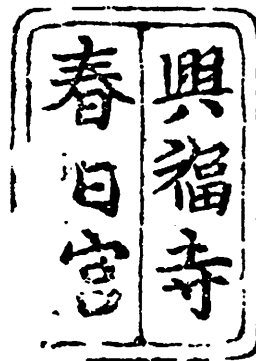 興福寺
春日宮